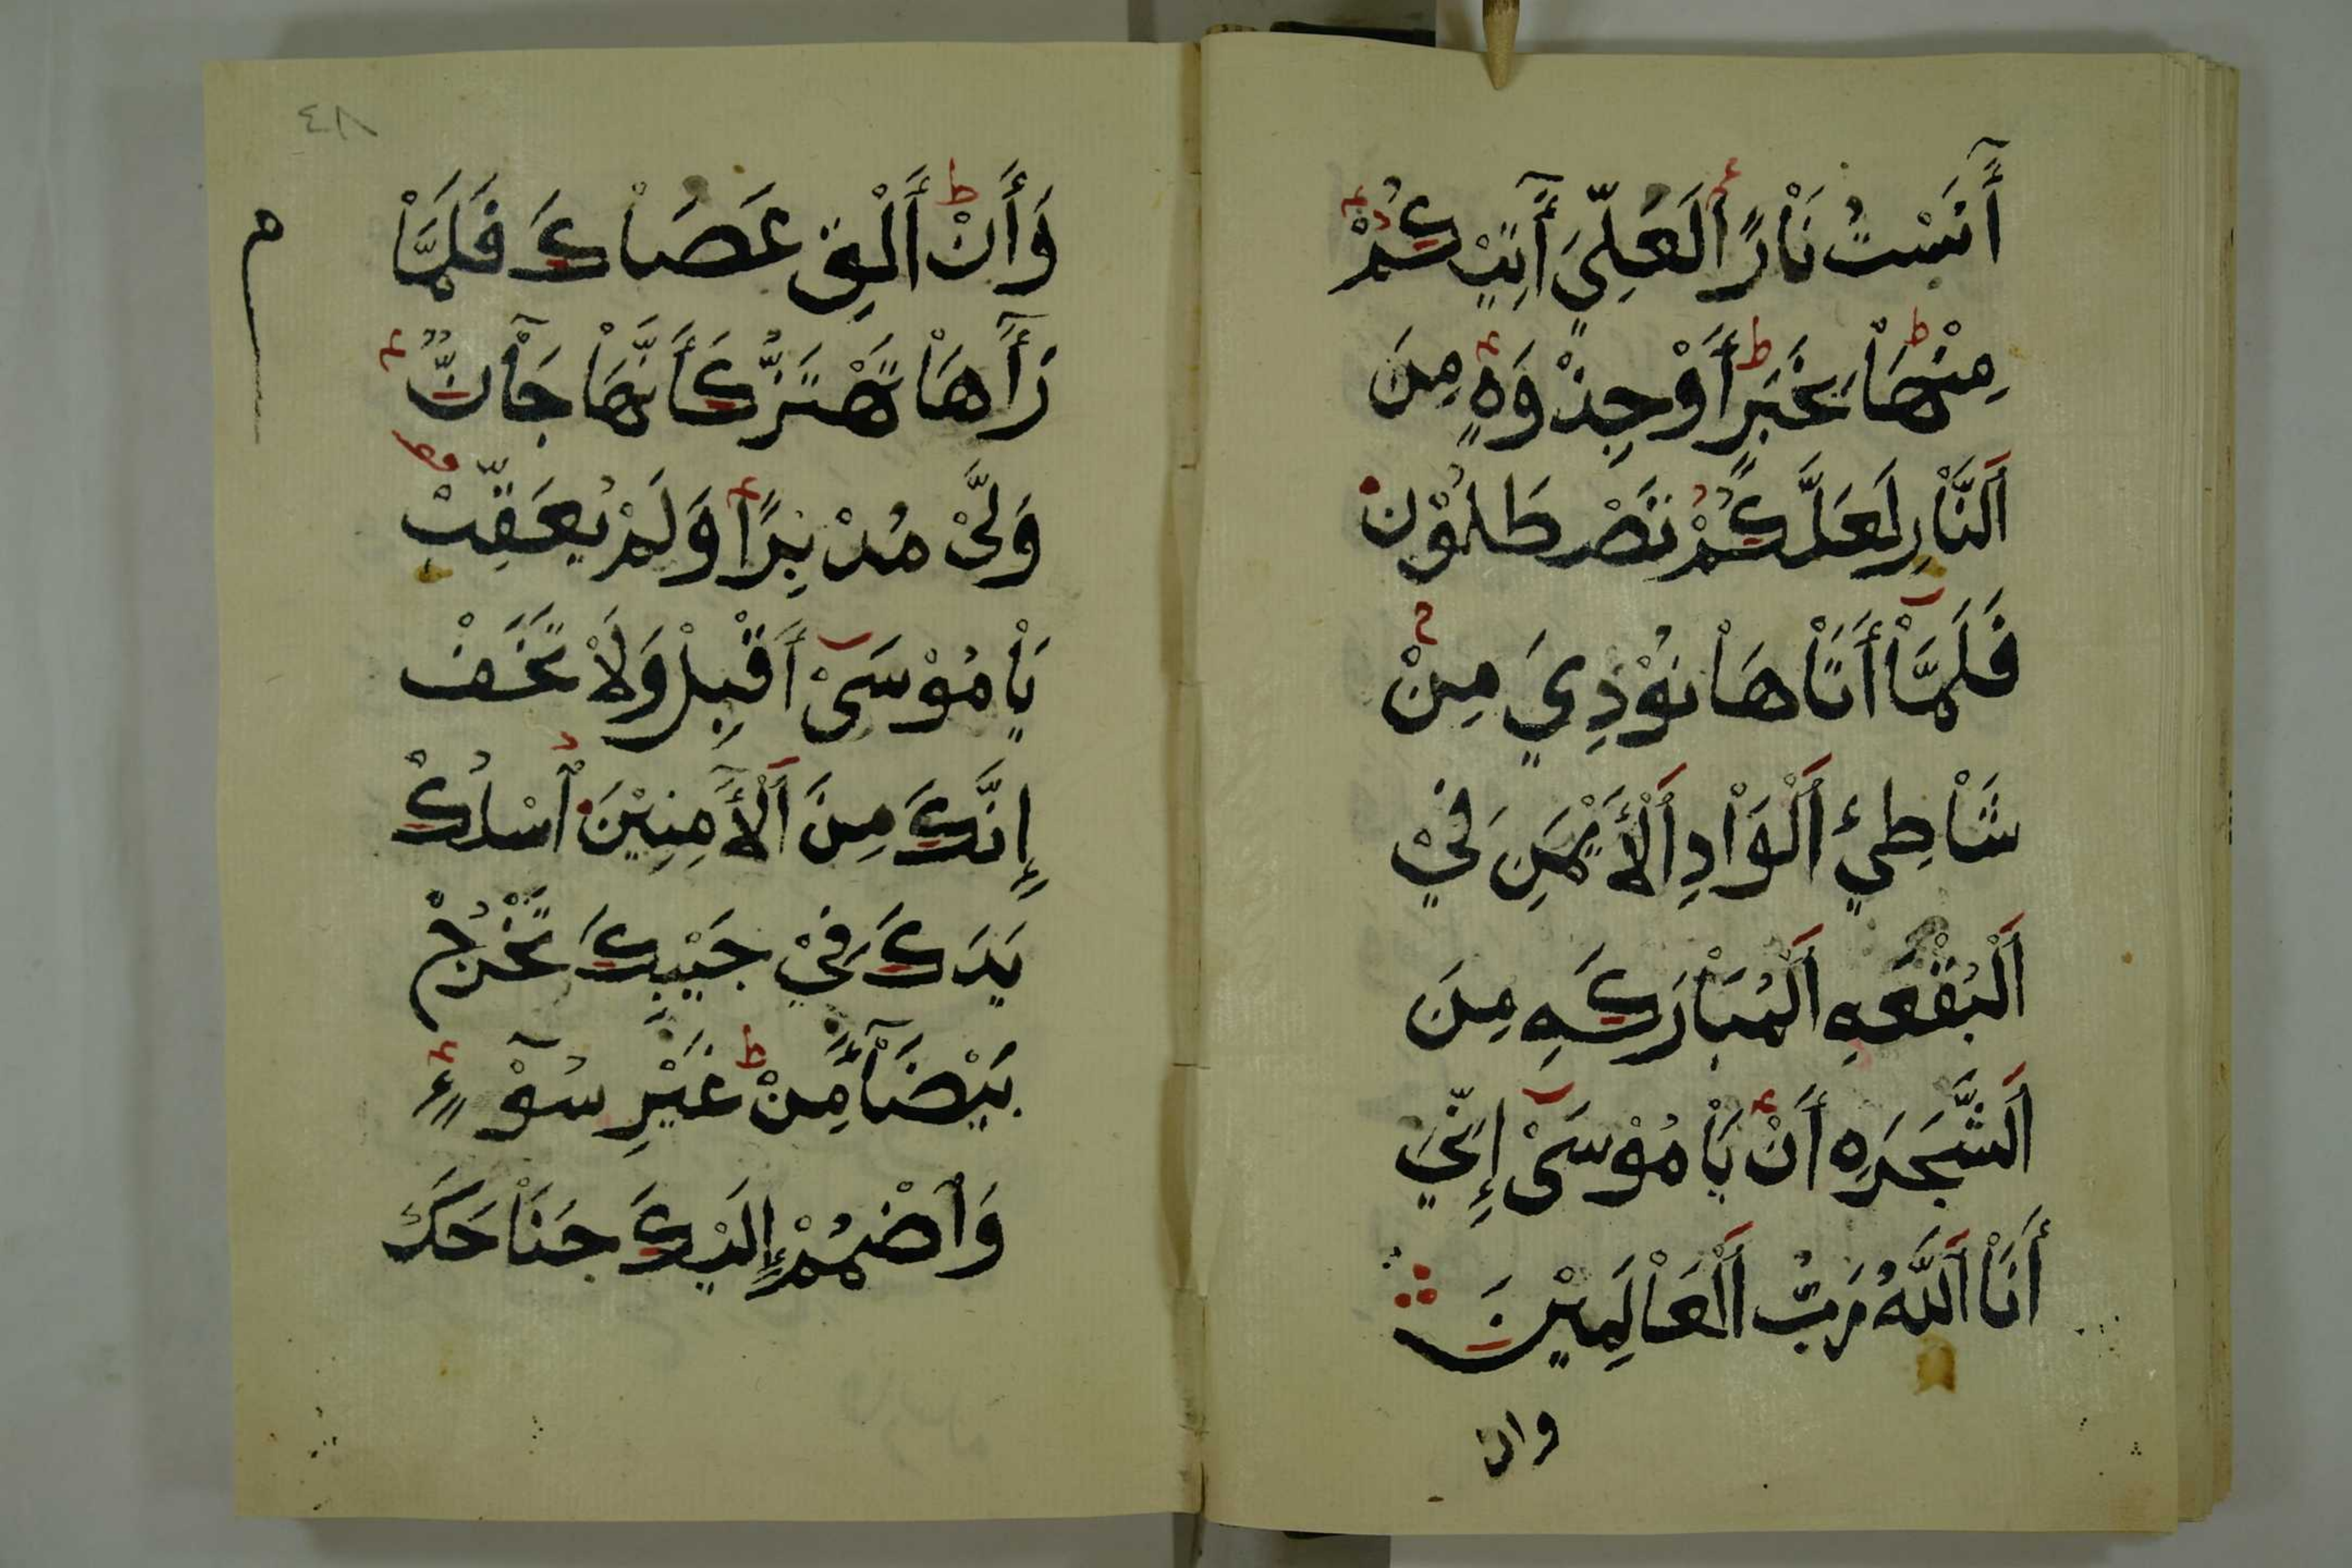 أَٓنَسْتُ نَاْرًا لَعَلِّيَ أَٓتِيْكُمْ
مِنْهَاْ بِخَبَرٍ أَوْ جِذْوَةٍ مِنَ
اَلنَّاْرِ لَعَلَّكُمْ تَصْطَلُوْنَ
فَلَمَّاْ أَتَاْهَاْ نُوْدِيَ مِنْ
شَاْطِئِ اَلْوَاْدِ اَلْأَيْمَنِ فِيْ
اَلْبُقْعَهِ اَلْمُبَاْرَكَهِ مِنَ
اَلشَّجَرَهِ أَنْ يَاْمُوْسَىْ إِنِّيَ
أَنَاْ اَللَّهُ رَبُّ اَلْعَاْلَمِيْنَ
وان
٤٨
وَأَنْ أَلْقِ عَصَاْكَ فَلَمَّاْ
رَأَٓهَاْ تَهْتَزُّ كَأَنَّهَاْ جَآْنٌّ
وَلَّىْ مُدْبِرًا وَلَمْ يُعَقِّبْ
يَاْمُوْسَىْ أَقْبِلْ وَلَاْ تَخَفْ
إِنَّكَ مِنَ اَلْأَٓمِنِيْنَ اُسْلُكْ
يَدَكَ فِيْ جَيْبِكَ تَخْرُجْ
بَيْضَآْءَ مِنْ غَيْرِ سُوْٓءٍ
وَاْضْمُمْ إِلَيْكَ جَنَاْحَكَ